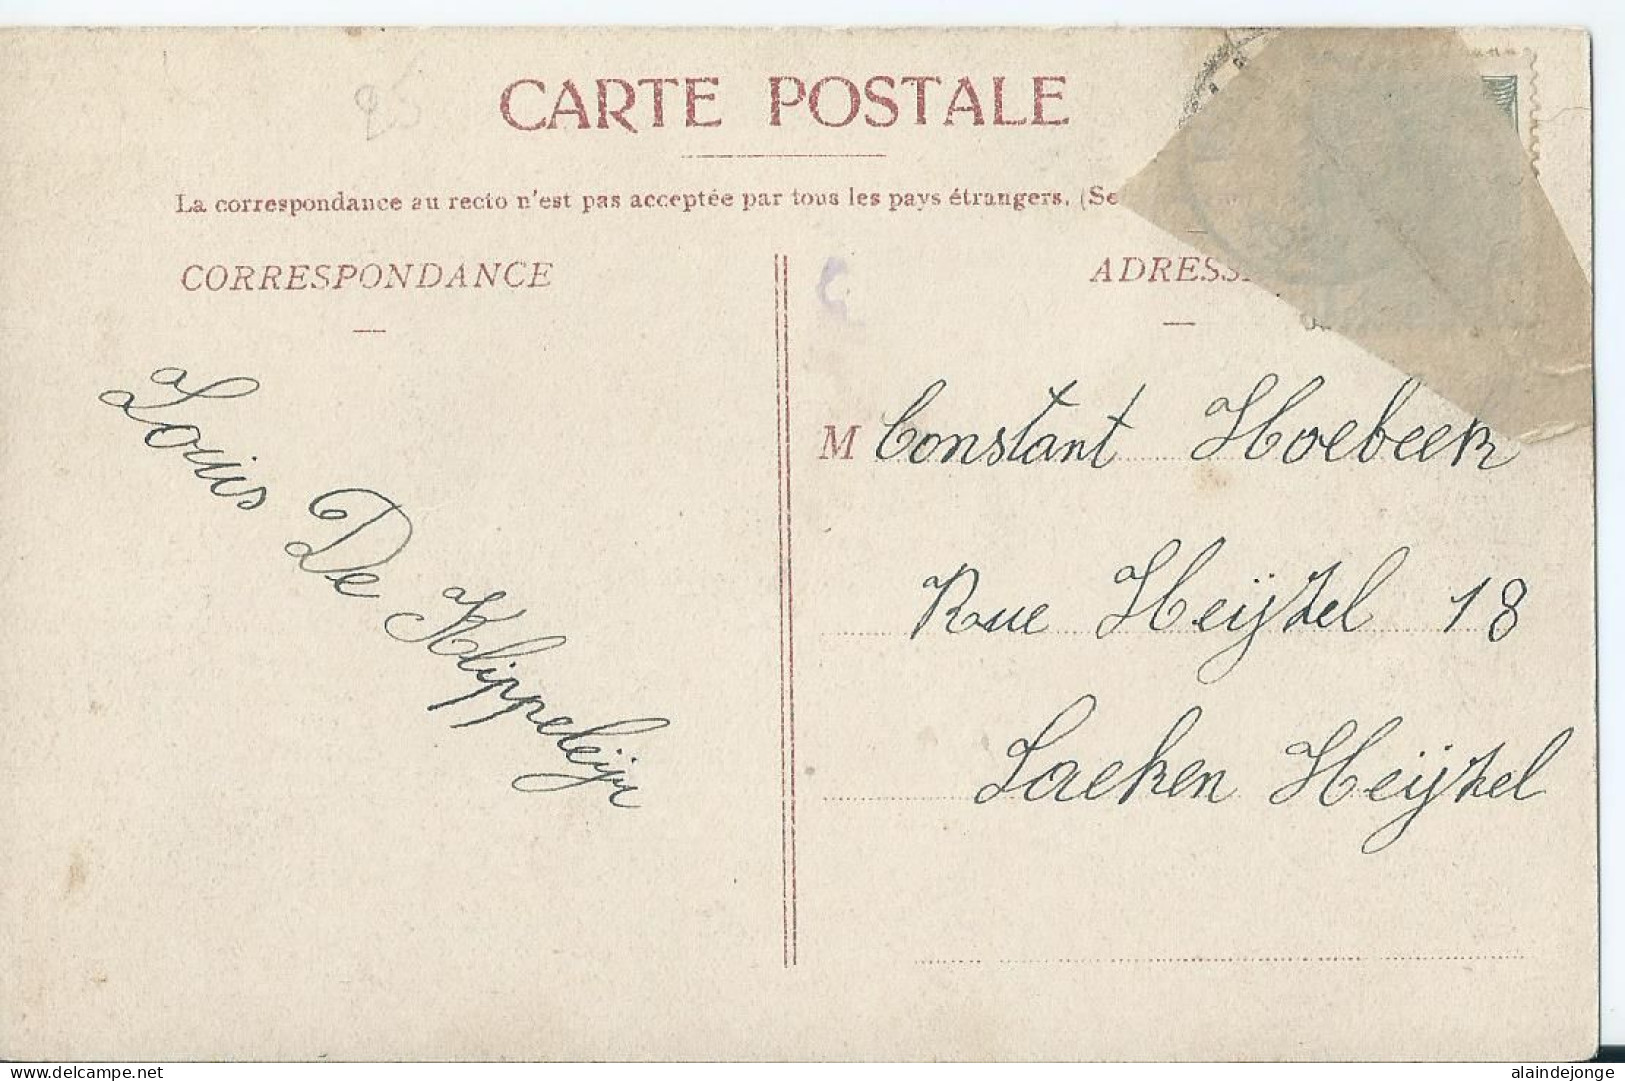 25
CARTE POSTALE
La correspondance au recto n'est pas acceptée par tous les pays étrangers. (Se
CORRESPONDANCE
ADRESS
Louis De Klippeleijr
M Constant Hoebeek
Rue Heijzel 18
Laeken Heijzel
delcampe.net
alaindejonge